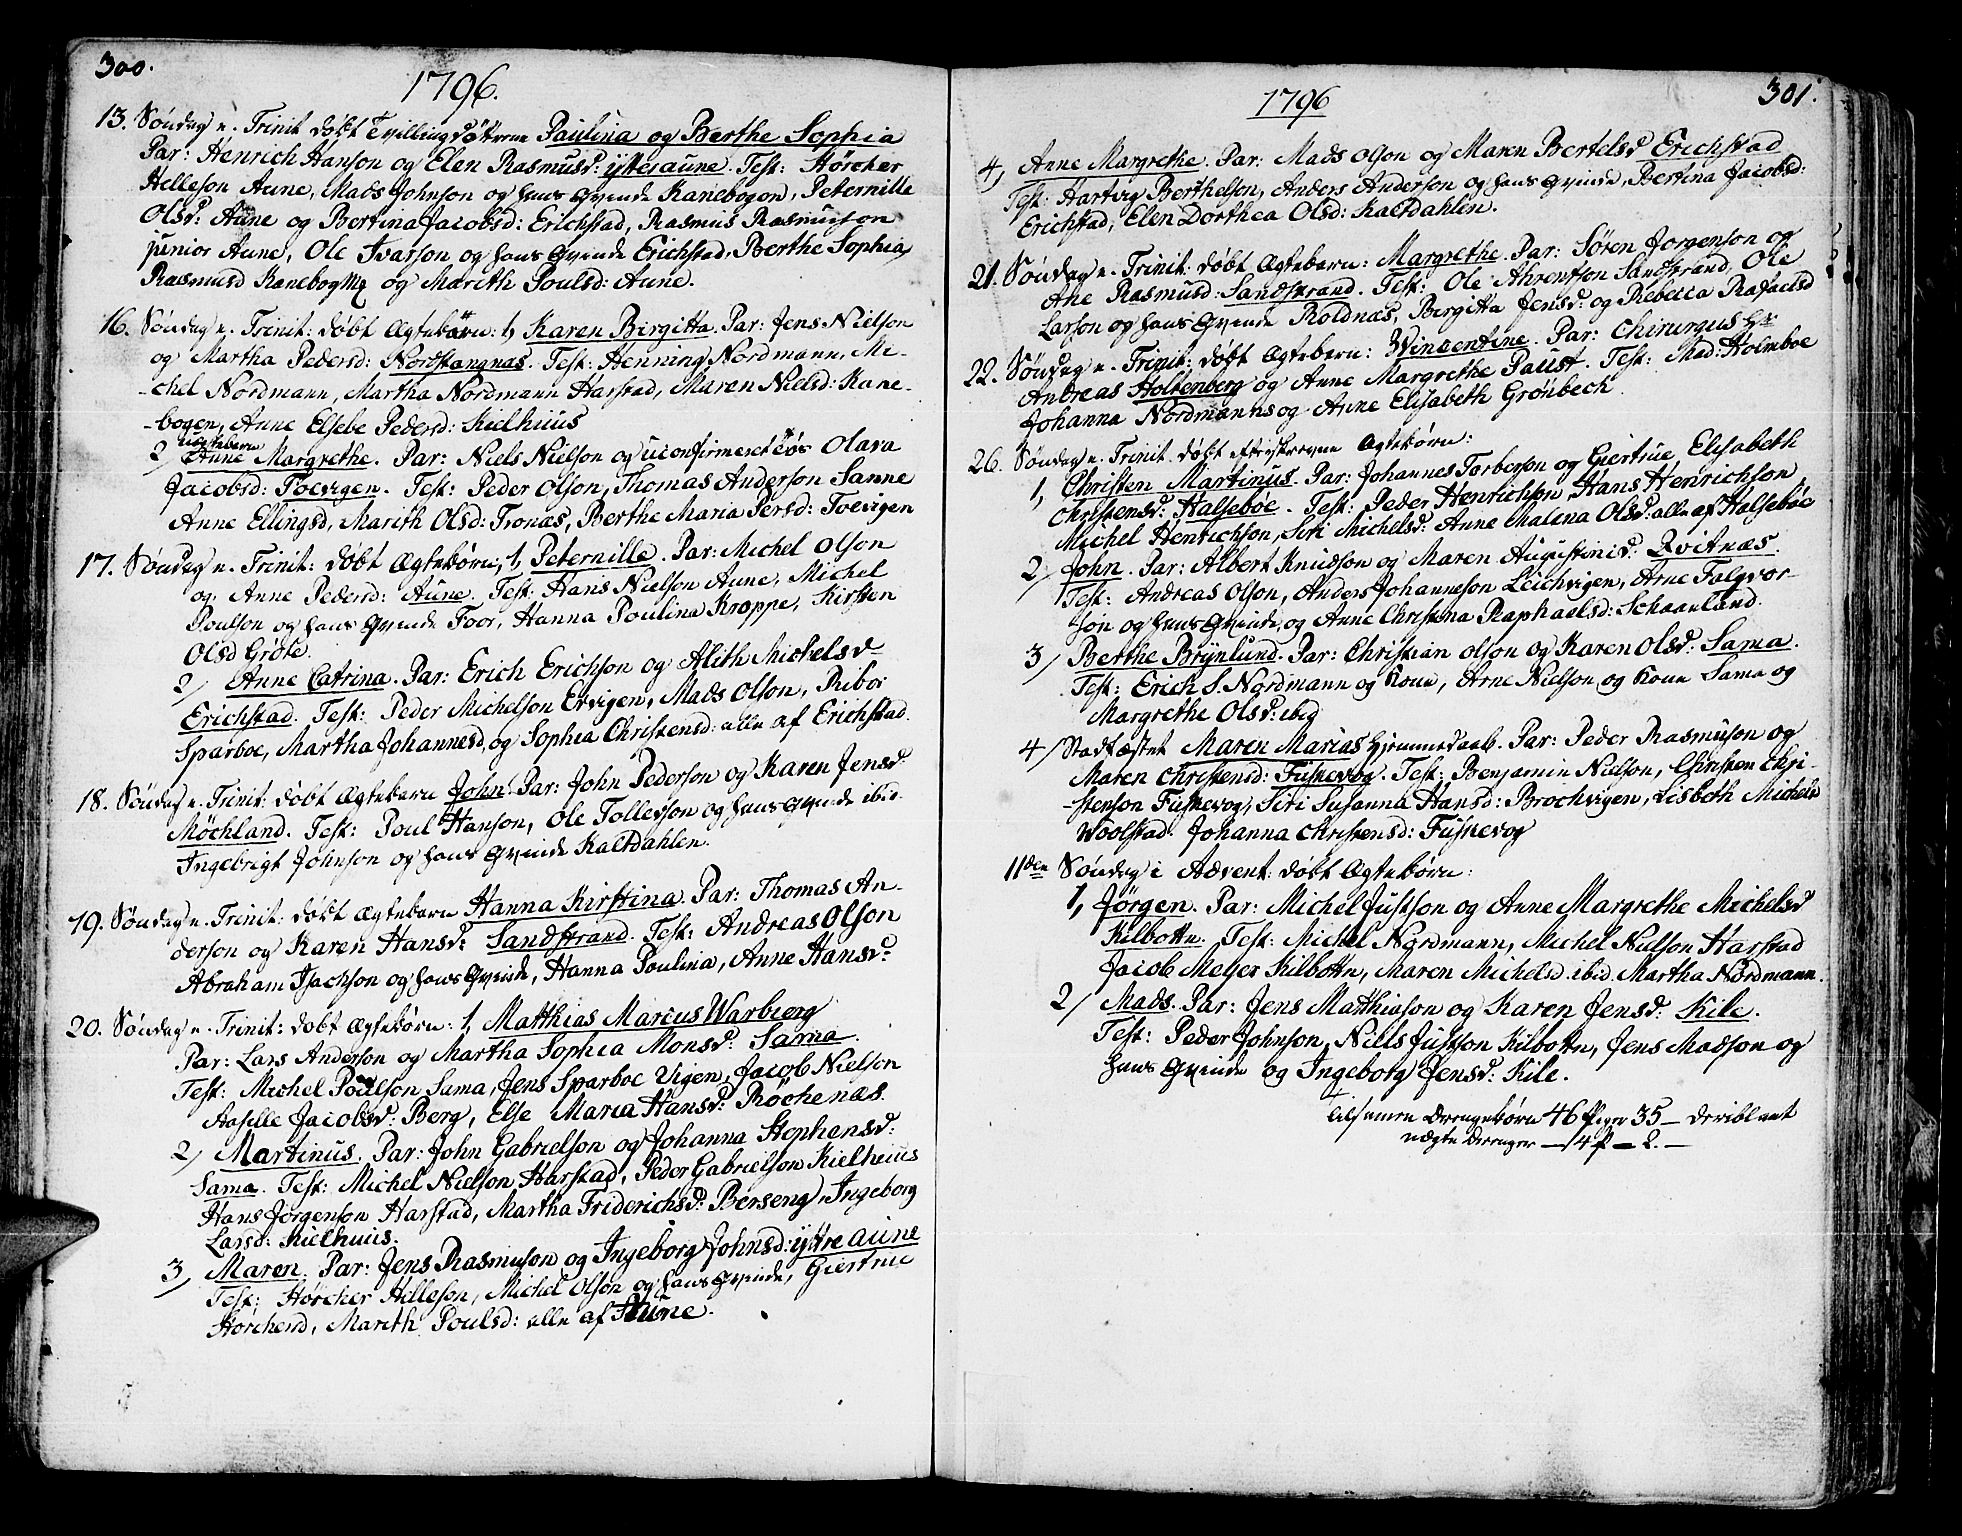 300.
1796.
13. Søndag e. Trinit døbt Tvillingdøttrene Paulina og Berthe Sophia
Par: Henrich Hanson og Elen Rasmusd: ytteraune. Test: Hørcher
Helleson Aune, Mads Johnson og hans Qvinde Kanebogen, Peternille
Olsd: Aune og Bertina Jacobsd: Erichstad, Rasmus Rasmuson
junior Aune, Ole Ivarson og hans Qvinde Erichstad, Berthe Sophia
Rasmusd Kanebog og Marith Poulsd: Aune.
16. Søndag e. Trinit: døbt Ægtebørn: 1, Karen Birgitta. Par: Jens Nielson
og Martha Pedersd: Nordstangnæs. Test: Henning Nordmann, Mi-
-chel Nordmann, Martha Nordmann Harstad, Maren Nielsd: Kane-
-bogen, Anne Elsebe Pedersd: Kielhuus
uægtebarn
2/ Anne Margrethe. Par: Niels Nielson og uconfirmeret Tøs Olava
Jacobsd: Toevigen. Test: Peder Olson, Thomas Anderson Sanne
Anne Ellingsd, Marith Olsd: Tronæs, Berthe Maria Persd: Toevigen
17. Søndag e. Trinit: døbt Ægtebørn, 1, Peternille. Par: Michel Olson
og Anne Pedersd: Aune. Test: Hans Nielson Aune, Michel
Poulson og hans Qvinde Foor, Hanna Poulina Kroppe, Kirsten
Olsd Grøte.
2/ Anne Catrina. Par: Erich Erichson og Alith Michelsd
Erichstad. Test: Peder Michelson Ervigen, Mads Olson, Ribor
Sparboe, Martha Johannesd, og Sophia Christensd: alle af Erichstad.
18. Søndag e. Trinit: døbt Ægtebarn John. Par: John Pederson og Karen Jensd
Møchland. Test: Poul Hanson, Ole Tollevson og hans Qvinde ibid.
Ingebrigt Johnson og hans Qvinde Kaltdahlen.
19. Søndag e. Trinit: døbt Ægtebarn Hanna Kirstina. Par: Thomas An-
derson og Karen Hansd: Sandstrand. Test: Andreas Olson
Abraham Isachson og hans Qvinde, Hanna Poulina, Anne Hansd:
20. Søndag e. Trinit: døbt Ægtebørn: 1, Matthias Marcus Warbierg
Par: Lars Anderson og Martha Sophia Monsd: Sama.
Test: Michel Poulson Sama, Jens Sparboe Vigen, Jacob Nielson
Aaselle Jacobsd: Berg, Else Maria Hansd: Røchenæs.
2/ Martinus. Par: John Gabrielson og Johanna Stephensd:
Sama. Test: Michel Nielson Harstad, Peder Gabrielson Kielhuus
Hans Jørgenson Harstad, Martha Friderichsd: Berseng, Ingeborg
Larsd: Kielhuus.
3/ Maren. Par: Jens Rasmuson og Ingeborg Johnsd: yttre Aune
Test: Hørcher Hilleson, Michel Olson og hans Qvinde, Giertrue
Hørchersd, Marith Poulsd: alle af Aune.
301.
1796
4/ Anne Margrethe. Par: Mads Olson og Maren Bertelsd Erichstad
Test: Hartvig Berthelson, Anders Anderson og hans Qvinde, Bertina Jacobsd:
Erichstad, Elen Dorthea Olsd: Kaltdahlen.
21. Søndag e. Trinit: døbt Ægtebarn: Margrethe. Par: Søren Jørgenson og
Ane Rasmusd: Sandstrand. Test: Ole Ahrentson Sandstrand, Ole
Larson og hans Qvinde Roldnæs, Birgitta Jensd: og Rebecca Rafaelsd
22. Søndag e. Trinit: døbt Ægtebarn: Wincentine. Par: Chirurgus Hr
Andreas Holtenberg og Anne Margrethe Paust. Test: Mad: Holmboe
Johanna Nordmanns og Anne Elisabeth Grønbech
26. Søndag e. Trinit. døbt efterskrevne Ægtebørn:
1, Christen Martinus. Par: Johannes Torberson og Giertrue Elisabeth
Christensd: Halsebøe. Test: Peder Henrichson, Hans Henrichson
Michel Henrichson, Siri Michelsd: Anne Malena Olsd: alle af Halsebøe
2/ John. Par: Albert Knudson og Maren Augustinid: Qvitnæs.
Test: Andreas Olson, Anders Johanneson Leichvigen, Arne Falqvor-
son og hans Qvinde, og Anne Christina Raphaelsd: Schaanland.
3/ Berthe Brynlund. Par: Christian Olson og Karen Olsd: Sama.
Test: Erich S. Nordmann og Kone, Arne Nielson og Kone Sama og
Margrethe Olsd: ibid
4/ Stadfæstet Maren Marias Hjemmedaab. Par: Peder Rasmuson og
Maren Christensd: Fuskevog. Test: Benjamin Nielson, Christen Chri-
-stenson Fuskevog, Siri Susanna Hansd: Brochvigen, Lisbeth Michelsd
Woolstad. Johanna Christensd: Fuskevog
11den Søndag i Advent: døbt Ægtebørn:
1, Jørgen. Par: Michel Justson og Anne Margrethe Michelsd
Kilbottn. Test: Michel Nordmann, Michel Nielson Harstad
Jacob Meyer Kilbottn, Maren Michelsd ibid. Martha Nordmann.
2/ Mads. Par: Jens Matthiason og Karen Jensd: Kile.
Test: Peder Johnson, Niels Justson Kilbottn, Jens Madson og
hans Qvinde og Ingeborg Jensd: Kile.
tilsamen Drengebørn 46 Piger 35 — deriblant
uægte Drenger — 4 P — 2. —